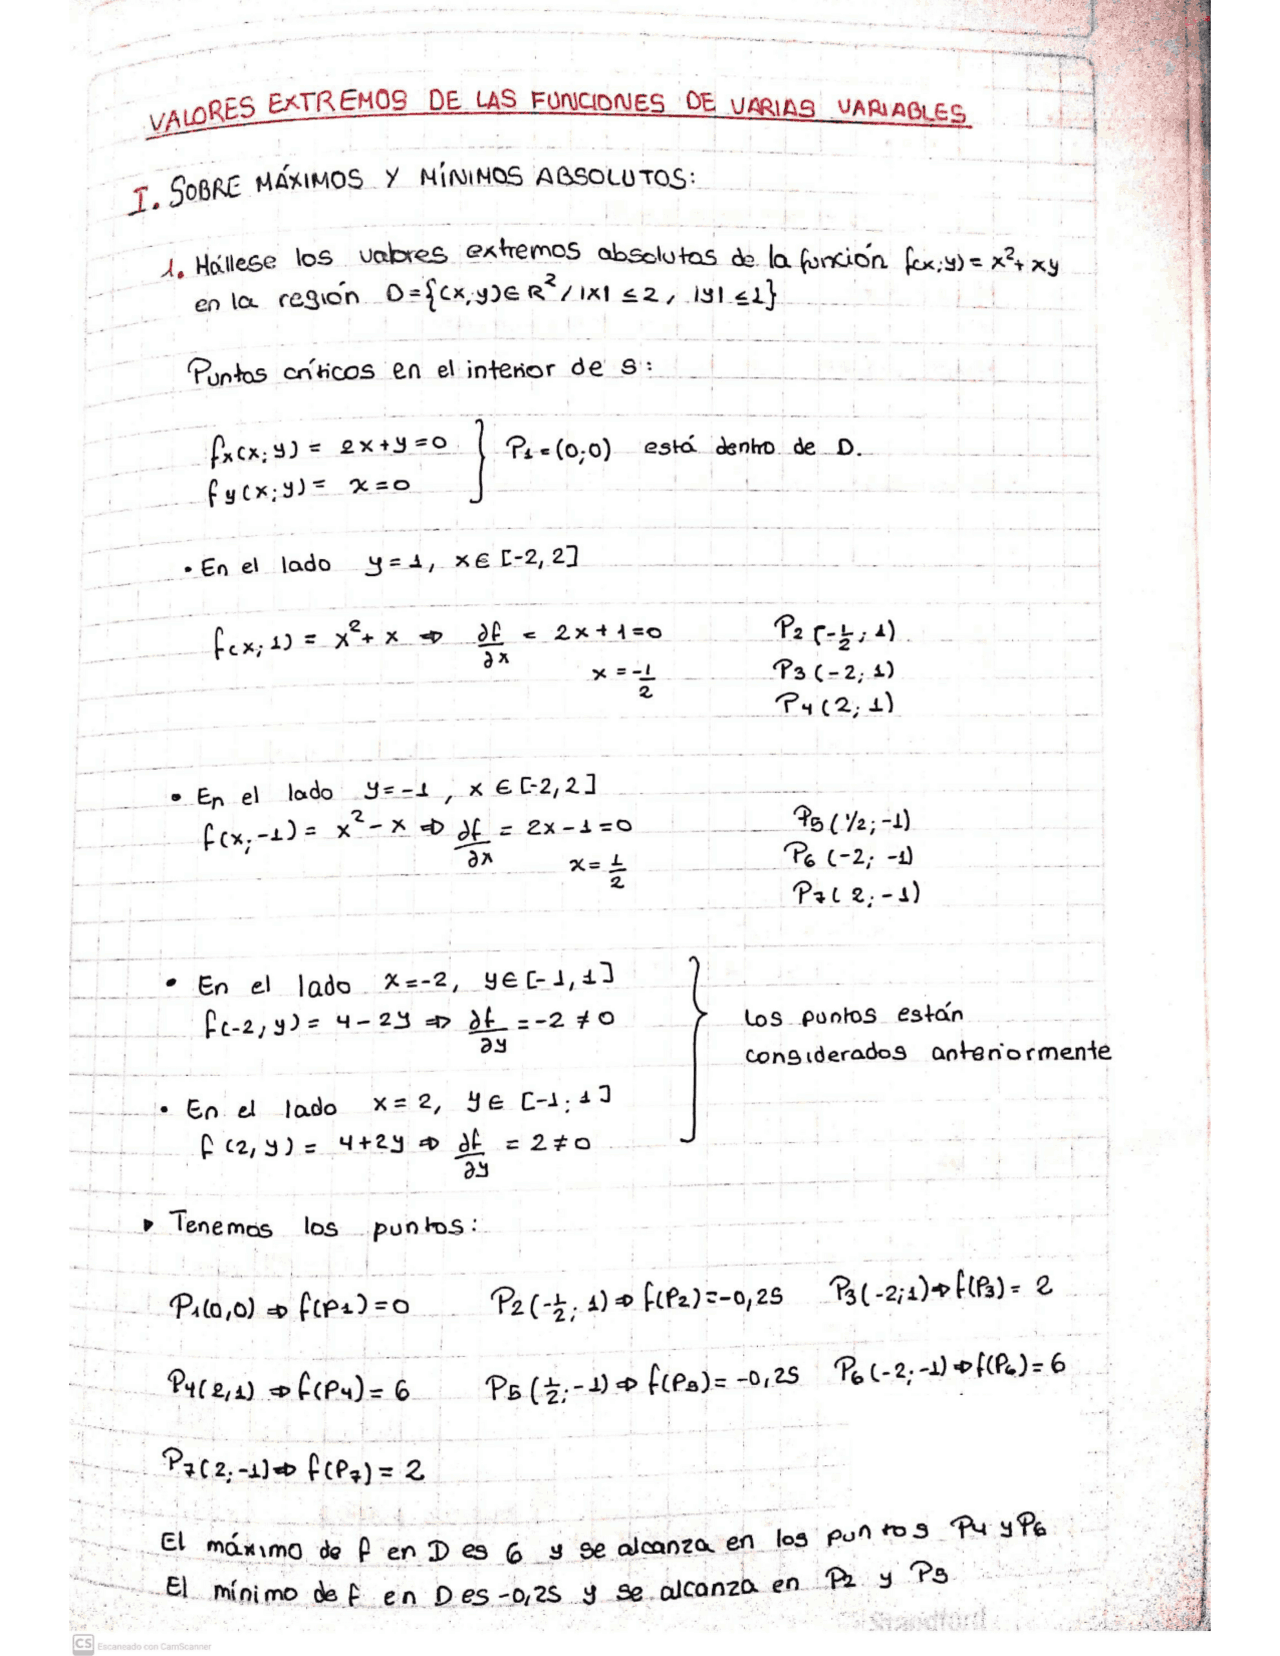 VALORES EXTREMOS DE LAS FUNCIONES DE VARIAS VARIABLES
I. SOBRE MÁXIMOS Y MÍNIMOS ABSOLUTOS:
1. Hállese los valores extremos absolutos de la función f(x;y) = x²+ xy
en la región D={(x,y)∈ R² / |x| ≤2 , |y| ≤1}
Puntos críticos en el interior de S:
fx(x;y) = 2x+y=0 } P1=(0;0) está dentro de D.
fy(x;y) = x=0
• En el lado y=1, x∈ [-2,2]
f(x;1) = x²+ x ⇒ ∂f/∂x = 2x+1=0 P2 (-1/2; 1)
x = -1/2 P3 (-2; 1)
P4 (2; 1)
• En el lado y=-1 , x ∈ [-2,2]
f(x;-1) = x²-x ⇒ ∂f/∂x = 2x-1=0 P5 (1/2; -1)
x= 1/2 P6 (-2; -1)
P7 ( 2; -1)
• En el lado x=-2, y∈ [-1,1]
f(-2,y) = 4-2y ⇒ ∂f/∂y = -2 ≠ 0 } Los puntos están
considerados anteriormente
• En el lado x=2, y∈ [-1;1]
f (2,y) = 4+2y ⇒ ∂f/∂y = 2≠0
▸ Tenemos los puntos:
P1(0,0) ⇒ f(P1)=0 P2(-1/2; 1) ⇒ f(P2)=-0,25 P3(-2;1)⇒f(P3)= 2
P4(2,1) ⇒ f(P4)= 6 P5 (1/2; -1) ⇒ f(P5)= -0,25 P6(-2;-1)⇒f(P6)= 6
P7(2;-1)⇒ f(P7)= 2
El máximo de f en D es 6 y se alcanza en los puntos P4 y P6
El mínimo de f en D es -0,25 y se alcanza en P2 y P5
CS Escaneado con CamScanner